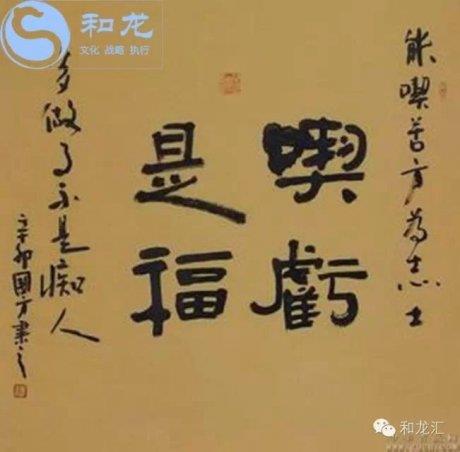 和龙
文化 战略 执行
能喫苦方為志士
喫虧
是福
多做事不是痴人
辛卯國方書之
和龙汇